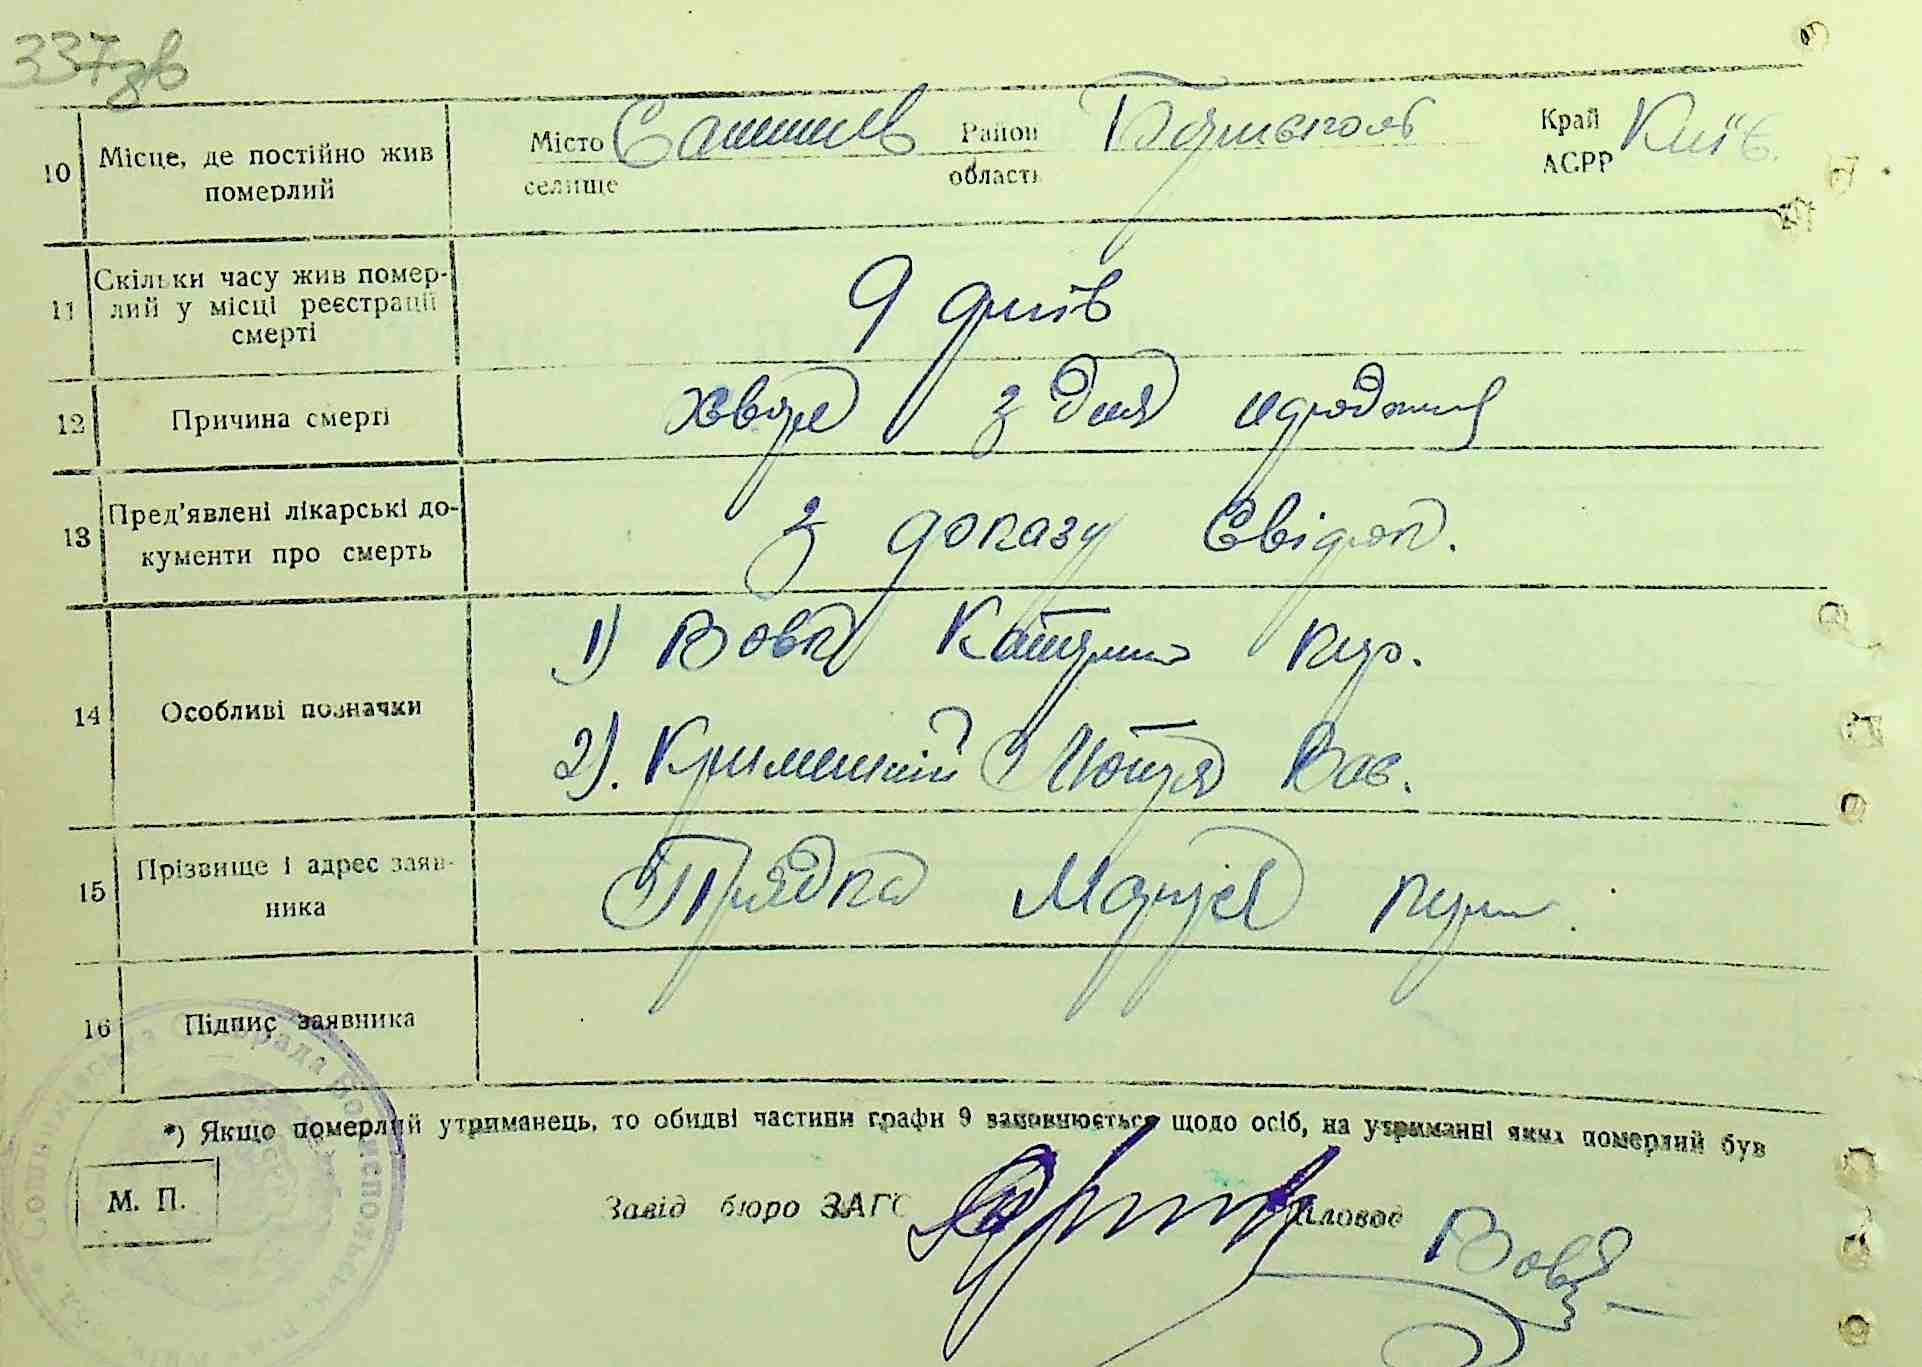 337зв
10 Місце, де постійно жив померлий
Місто селище Сошників Район область Бориспольс Край АСРР Київ.
11 Скільки часу жив помер-
лий у місці реєстрації
смерті
9 днів
12 Причина смерті
хворе з дня народження
13 Пред'явлені лікарські до-
кументи про смерть
з доказу свідків.
14 Особливі позначки
1) Вовк Катерина
2). Мотря
15 Прізвище і адрес заяв-
ника
Прядка Марія
16 Підпис заявника
*) Якщо померлий утриманець, то обидві частини графи 9 заповнюється щодо осіб, на утриманні яких померлий був
М. П.
Завід бюро ЗАГС
Діловод Вовк